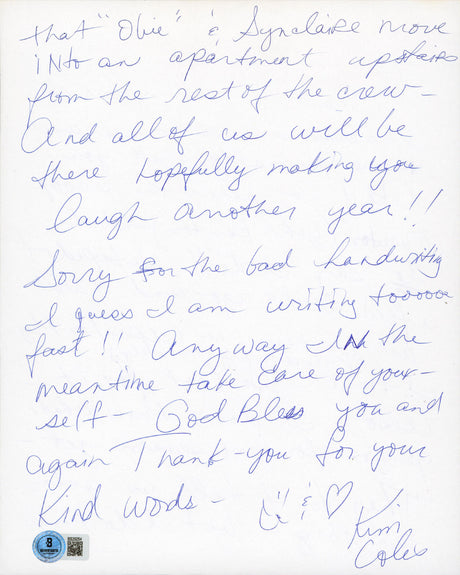 that "Obie" & Synclaire move
INto an apartment upstairs
from the rest of the crew—
And all of us will be
there hopefully making you
laugh another year!!
Sorry for the bad handwriting
I guess I am writing tooooo
fast!! Anyway IN the
meantime take care of your-
self— God Bless you and
again Thank-you for your
Kind words— & ♡
Kim
Coles
B